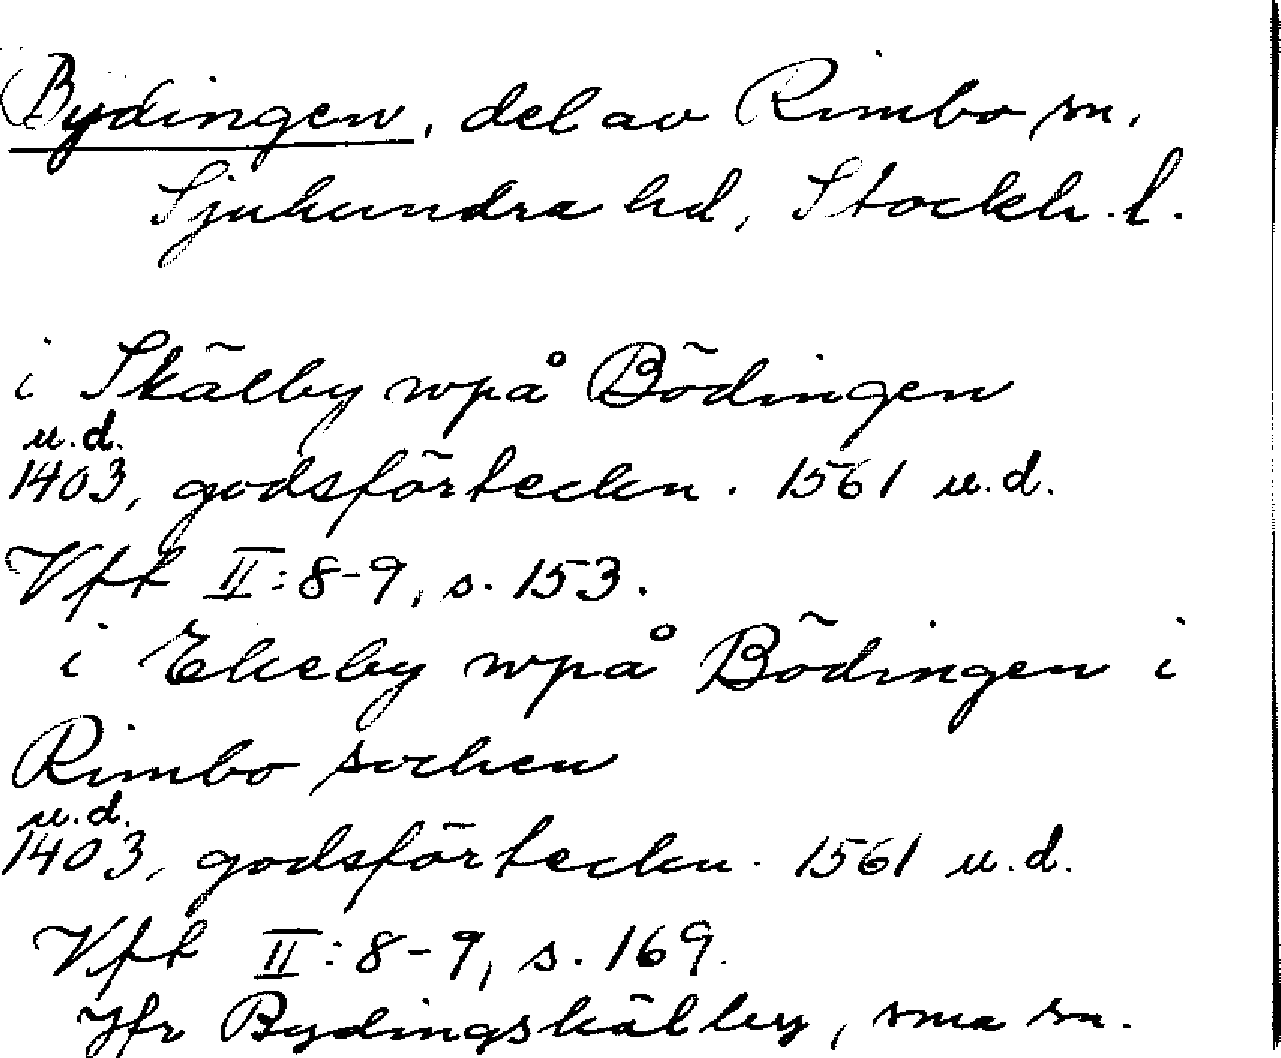 Bydingen, del av Rimbo sn.
Sjuhundra hd, Stockh. l.
i Skälby wpå Bödingen
u.d.
1403, godsförteckn. 1561 u.d.
Vfk II:8-9, s. 153.
i Ekeby wpå Bödingen i
Rimbo sochen
u.d.
1403, godsförteckn. 1561 u.d.
Vfk II:8-9, s. 169.
Jfr Bydingskälby, sma sn.